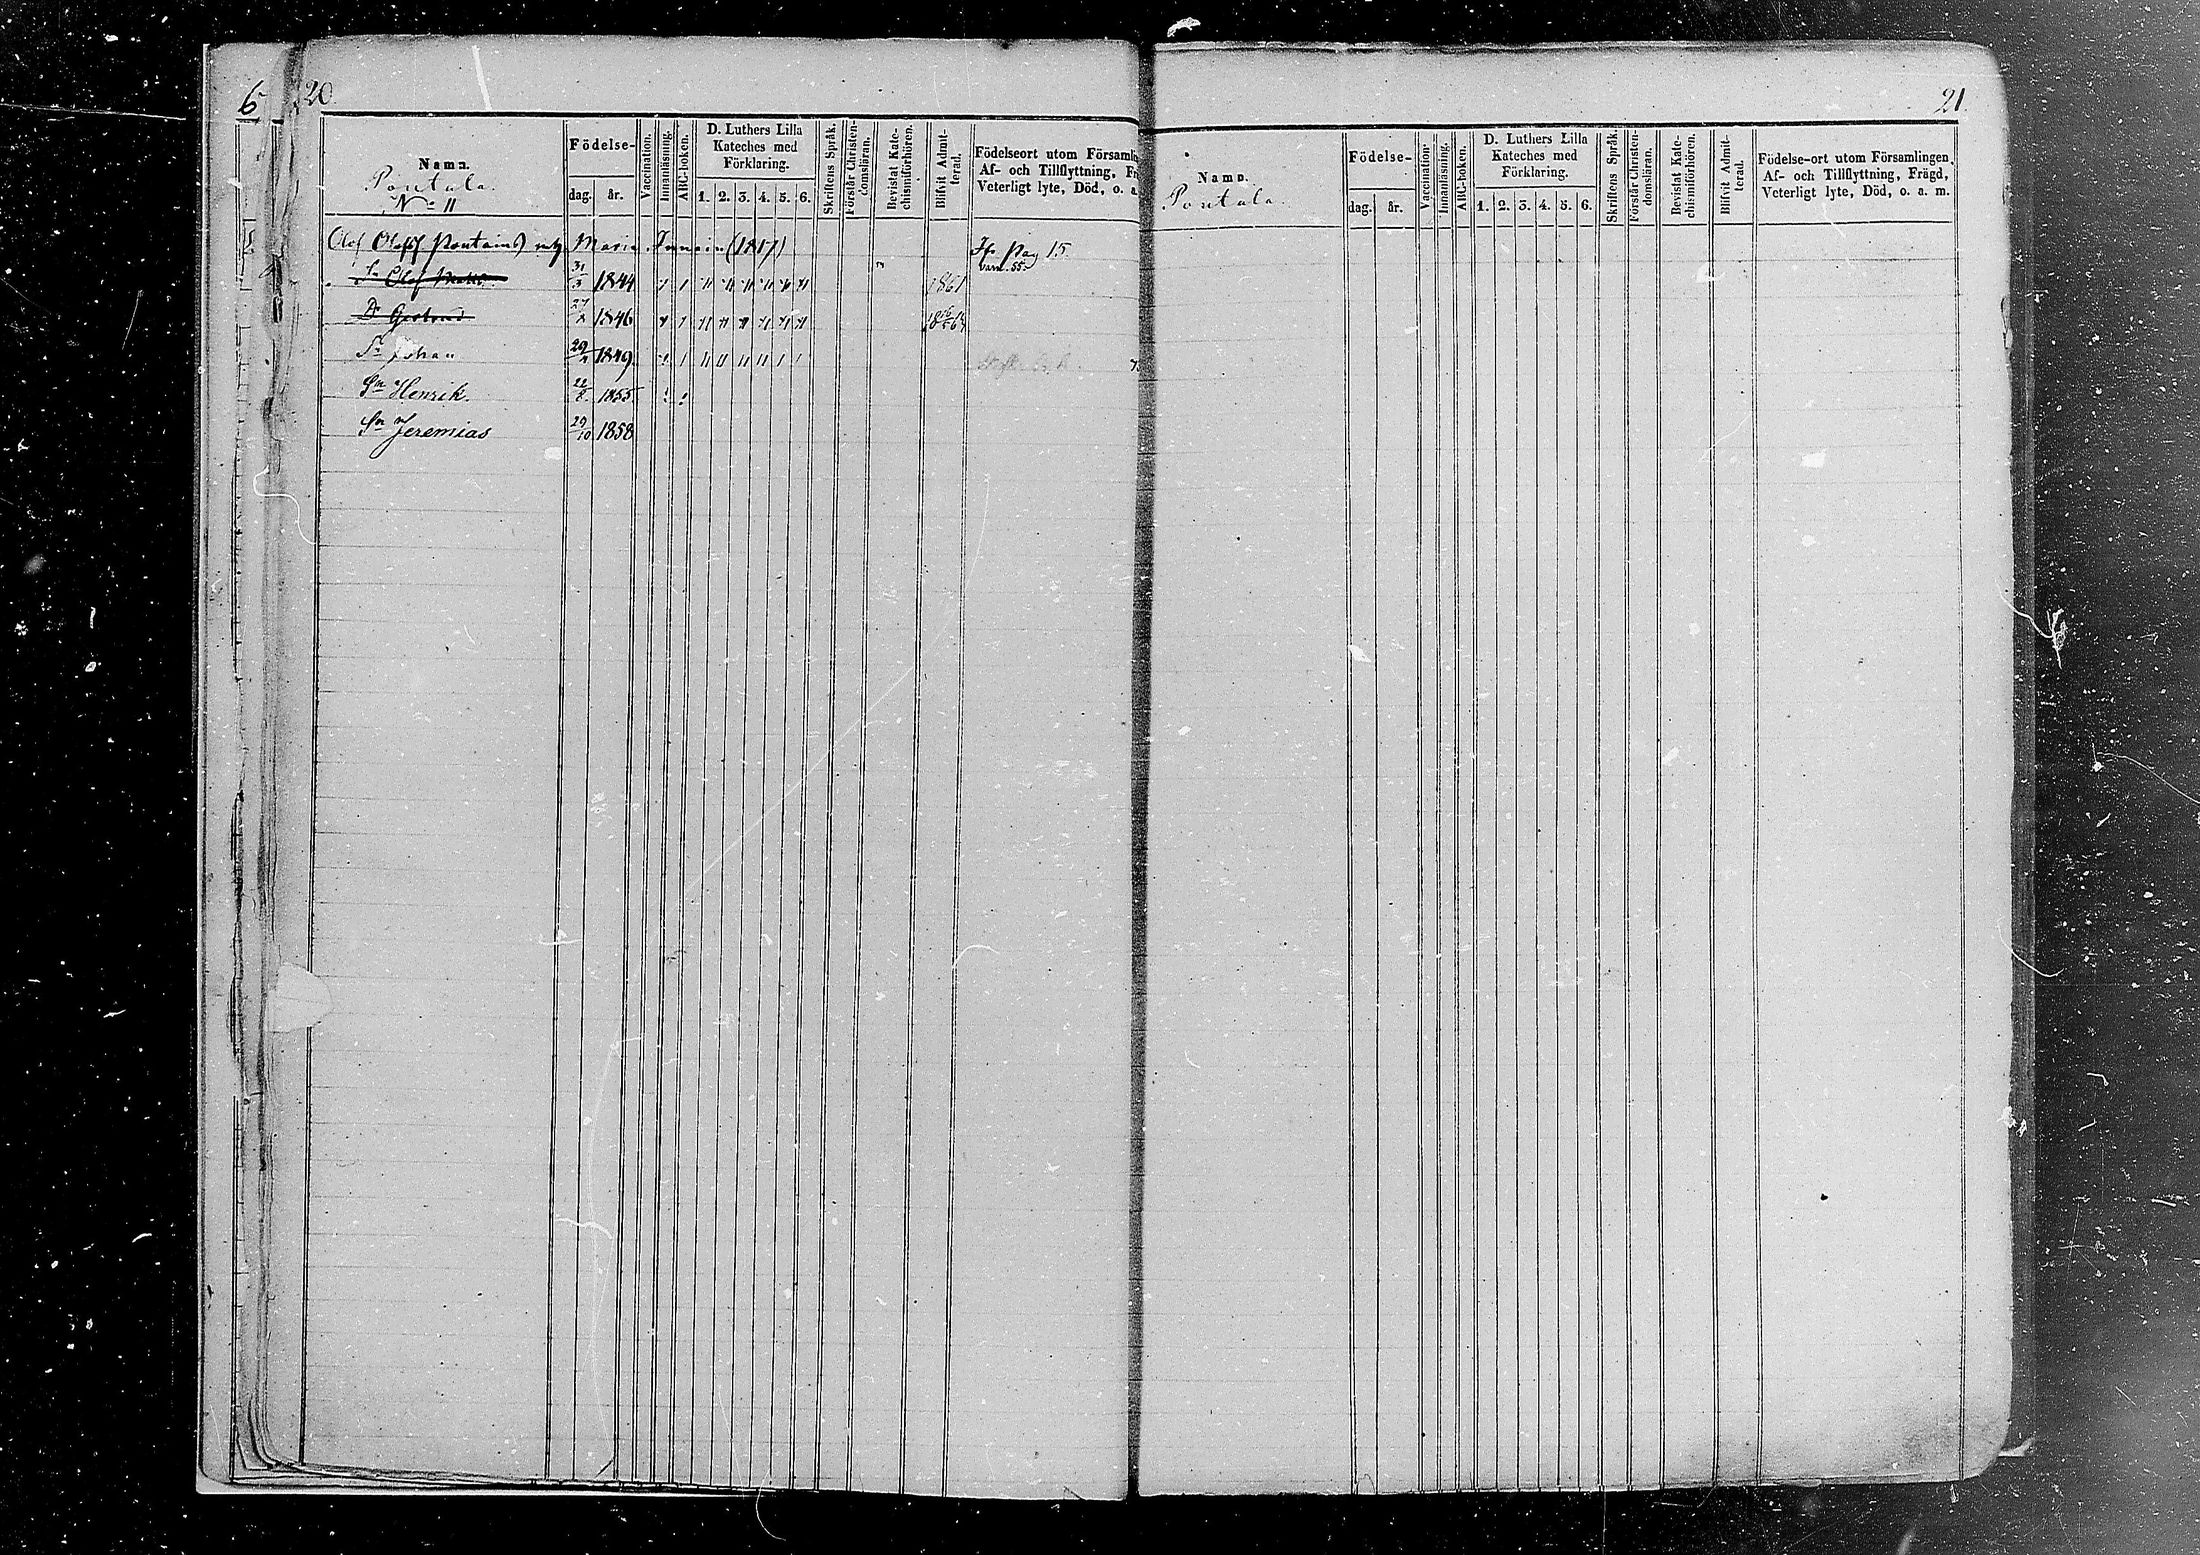 6
20
Namn.
Födelse-
dag. år.
Vaccination.
Innanläsning.
ABC-boken.
D. Luthers Lilla
Kateches med
Förklaring.
1. 2. 3. 4. 5. 6.
Skriftens Språk.
Förstår Christen-
domsläran.
Bevistat Kate-
chismiförhören.
Blifvit Admit-
terad.
Födelseort utom Församlin
Af- och Tillflyttning, Fr
Veterligt lyte, Död, o. a.
Pontula.
No 11
Olof Maria (1817) Pag 15.
barn. 55.
Sn Olof 31/3 1844 1861
Dr 1846
Sn Johan 1849
Sn Henrik. 22/8 1855
Sn Jeremias 29/10 1858
21
Namn.
Pontula.
Födelse-
dag. år.
Vaccination.
Innanläsning.
ABC-boken.
D. Luthers Lilla
Kateches med
Förklaring.
1. 2. 3. 4. 5. 6.
Skriftens Språk.
Förstår Christen-
domsläran.
Bevistat Kate-
chismiförhören.
Blifvit Admit-
terad.
Födelse-ort utom Församlingen,
Af- och Tillflyttning, Frägd,
Veterligt lyte, Död, o. a. m.